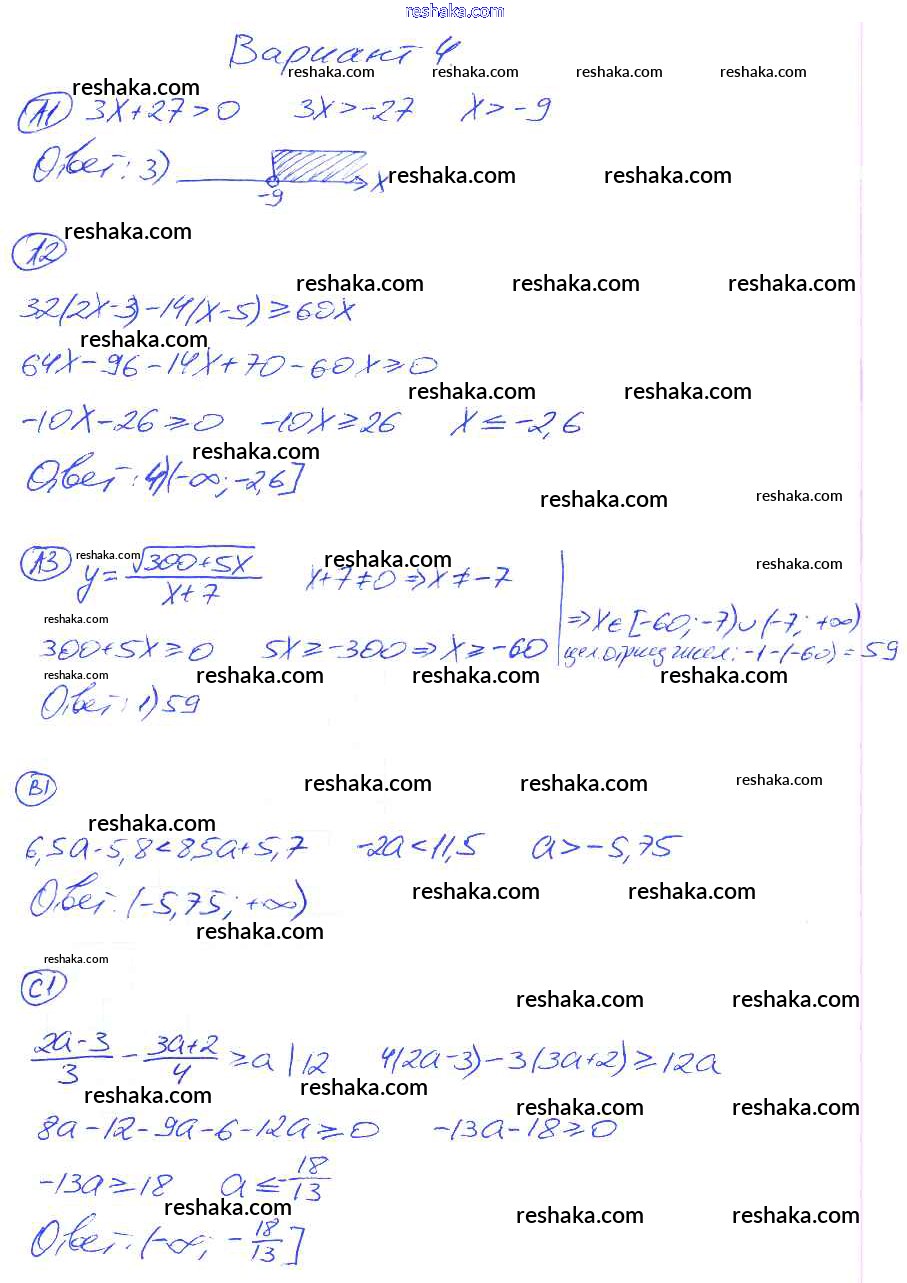 reshaka.com
Вариант 4
reshaka.com reshaka.com reshaka.com reshaka.com
reshaka.com
А1 3x+27>0 3x>-27 x>-9
Ответ: 3) -9 x
reshaka.com reshaka.com
reshaka.com
А2
reshaka.com reshaka.com reshaka.com
32(2x-3)-14(x-5)≥60x
reshaka.com
64x-96-14x+70-60x≥0
reshaka.com reshaka.com
-10x-26≥0 -10x≥26 x≤-2,6
reshaka.com
Ответ: 4)(-∞;-2,6]
reshaka.com reshaka.com
А3 y=√(300+5x)/(x+7) x+7≠0⇒x≠-7
reshaka.com reshaka.com reshaka.com
reshaka.com
⇒x∈[-60;-7)∪(-7;+∞)
300+5x≥0 5x≥-300⇒x≥-60 цел.отриц чисел: -1-(-60)=59
reshaka.com reshaka.com reshaka.com reshaka.com
Ответ: 1)59
В1
reshaka.com reshaka.com reshaka.com
reshaka.com
6,5a-5,8<8,5a+5,7 -2a<11,5 a>-5,75
reshaka.com reshaka.com
Ответ: (-5,75;+∞)
reshaka.com
reshaka.com
С1
reshaka.com reshaka.com
(2a-3)/3-(3a+2)/4≥a|12 4(2a-3)-3(3a+2)≥12a
reshaka.com reshaka.com
reshaka.com reshaka.com
8a-12-9a-6-12a≥0 -13a-18≥0
-13a≥18 a≤-18/13
reshaka.com reshaka.com reshaka.com
Ответ: (-∞;-18/13]